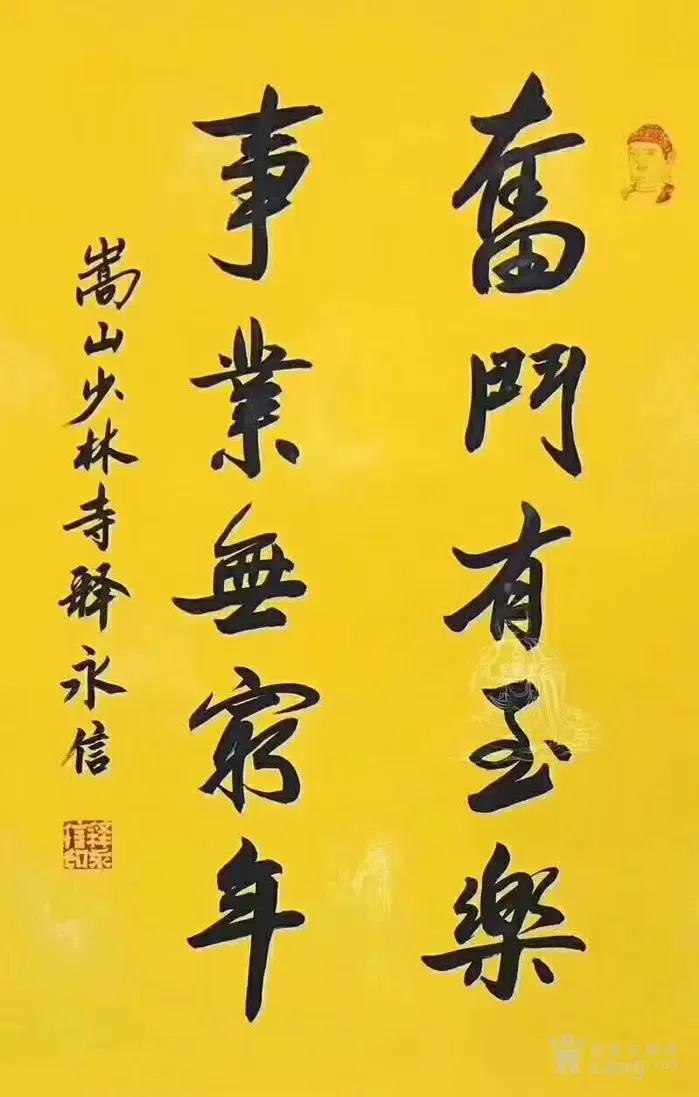 奮鬥有至樂
事業無窮年
嵩山少林寺釋永信
cang.com